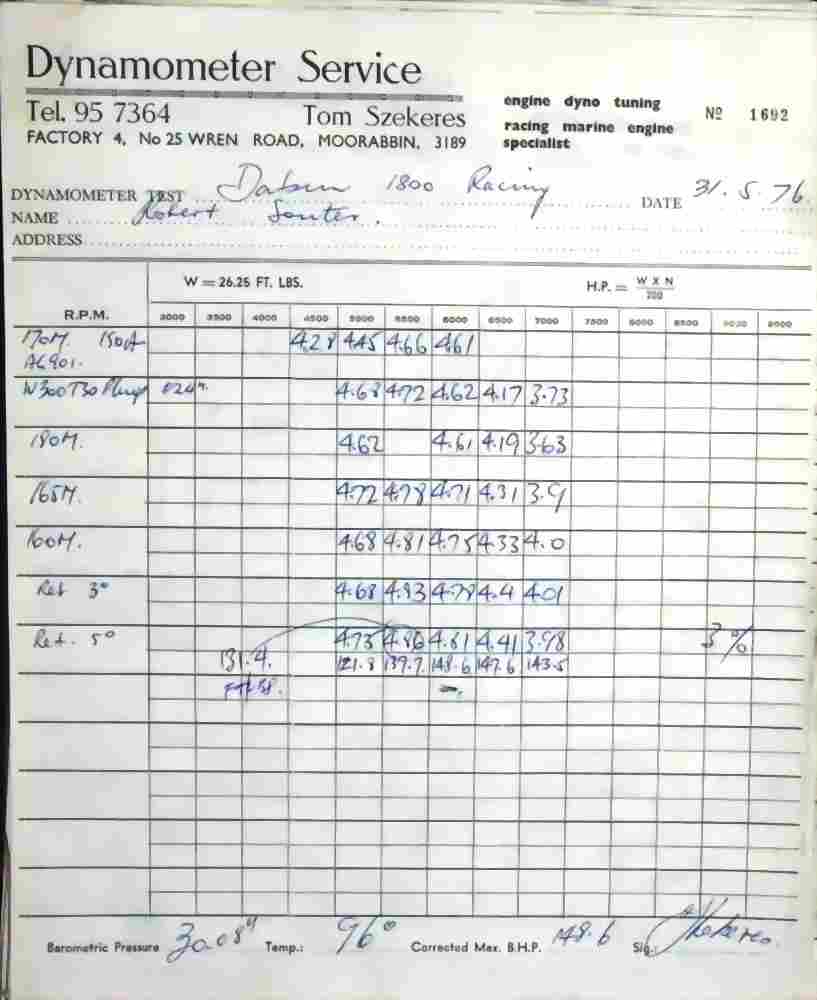 Dynamometer Service
Tel. 95 7364 Tom Szekeres
FACTORY 4, No 25 WREN ROAD, MOORABBIN, 3189
engine dyno tuning
racing marine engine
specialist
Nº 1692
DYNAMOMETER TEST Datsun 1800 Racing DATE 31.5.76
NAME Robert Souter.
ADDRESS
W = 26.25 FT. LBS. H.P. = W X N / 200
R.P.M. 3000 3500 4000 4500 5000 5500 6000 6500 7000 7500 8000 8500 9000 9500
170M. 150A 4.28 4.45 4.66 4.61
AC901.
W300T30 Plugs .024". 4.68 4.72 4.62 4.17 3.73
180M. 4.62 4.61 4.19 3.63
165M 4.72 4.78 4.71 4.31 3.9
160M. 4.68 4.81 4.75 4.33 4.0
Ret 3° 4.68 4.83 4.78 4.4 4.01
Ret. 5° 4.73 4.86 4.81 4.41 3.98 3%
131.4. 121.8 139.7 148.6 147.6 143.5
Barometric Pressure 30.08" Temp.: 96° Corrected Max. B.H.P. 148.6 Sig.: Szekeres